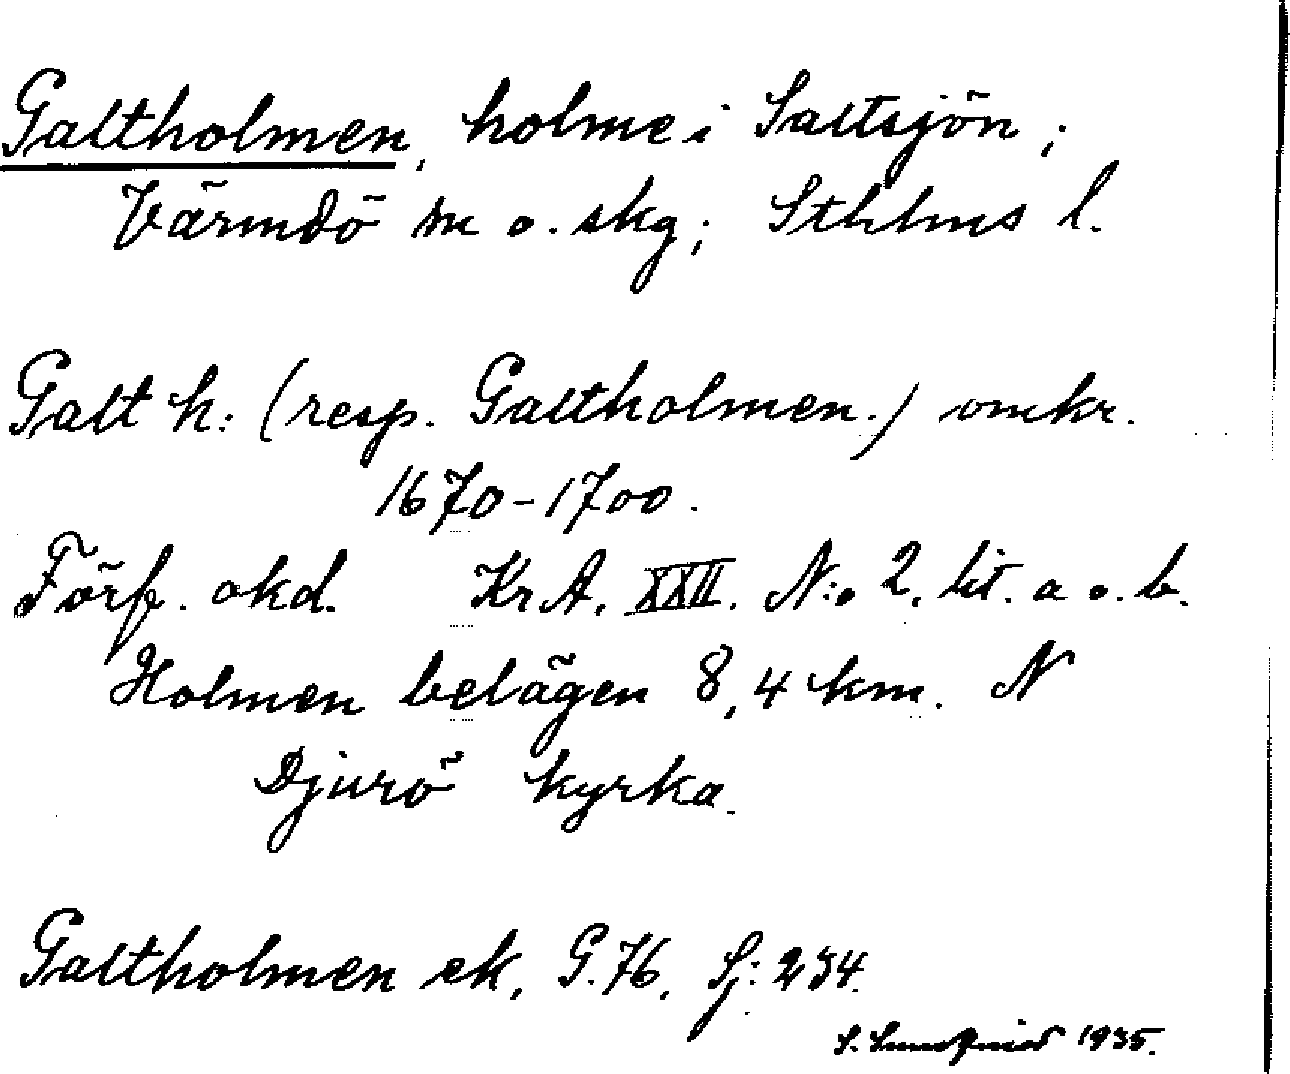 Galtholmen, holme i Saltsjön;
Värmdö m o. skg; Sthlms l.
Galt h: (resp. Galtholmen.) omkr.
1670-1700.
Förf. okd. KrA. XXII. N:o 2. lit. a o. b.
Holmen belägen 8,4 km. N
Djurö kyrka.
Galtholmen ek. G.76. Sj: 234.
S. 1935.